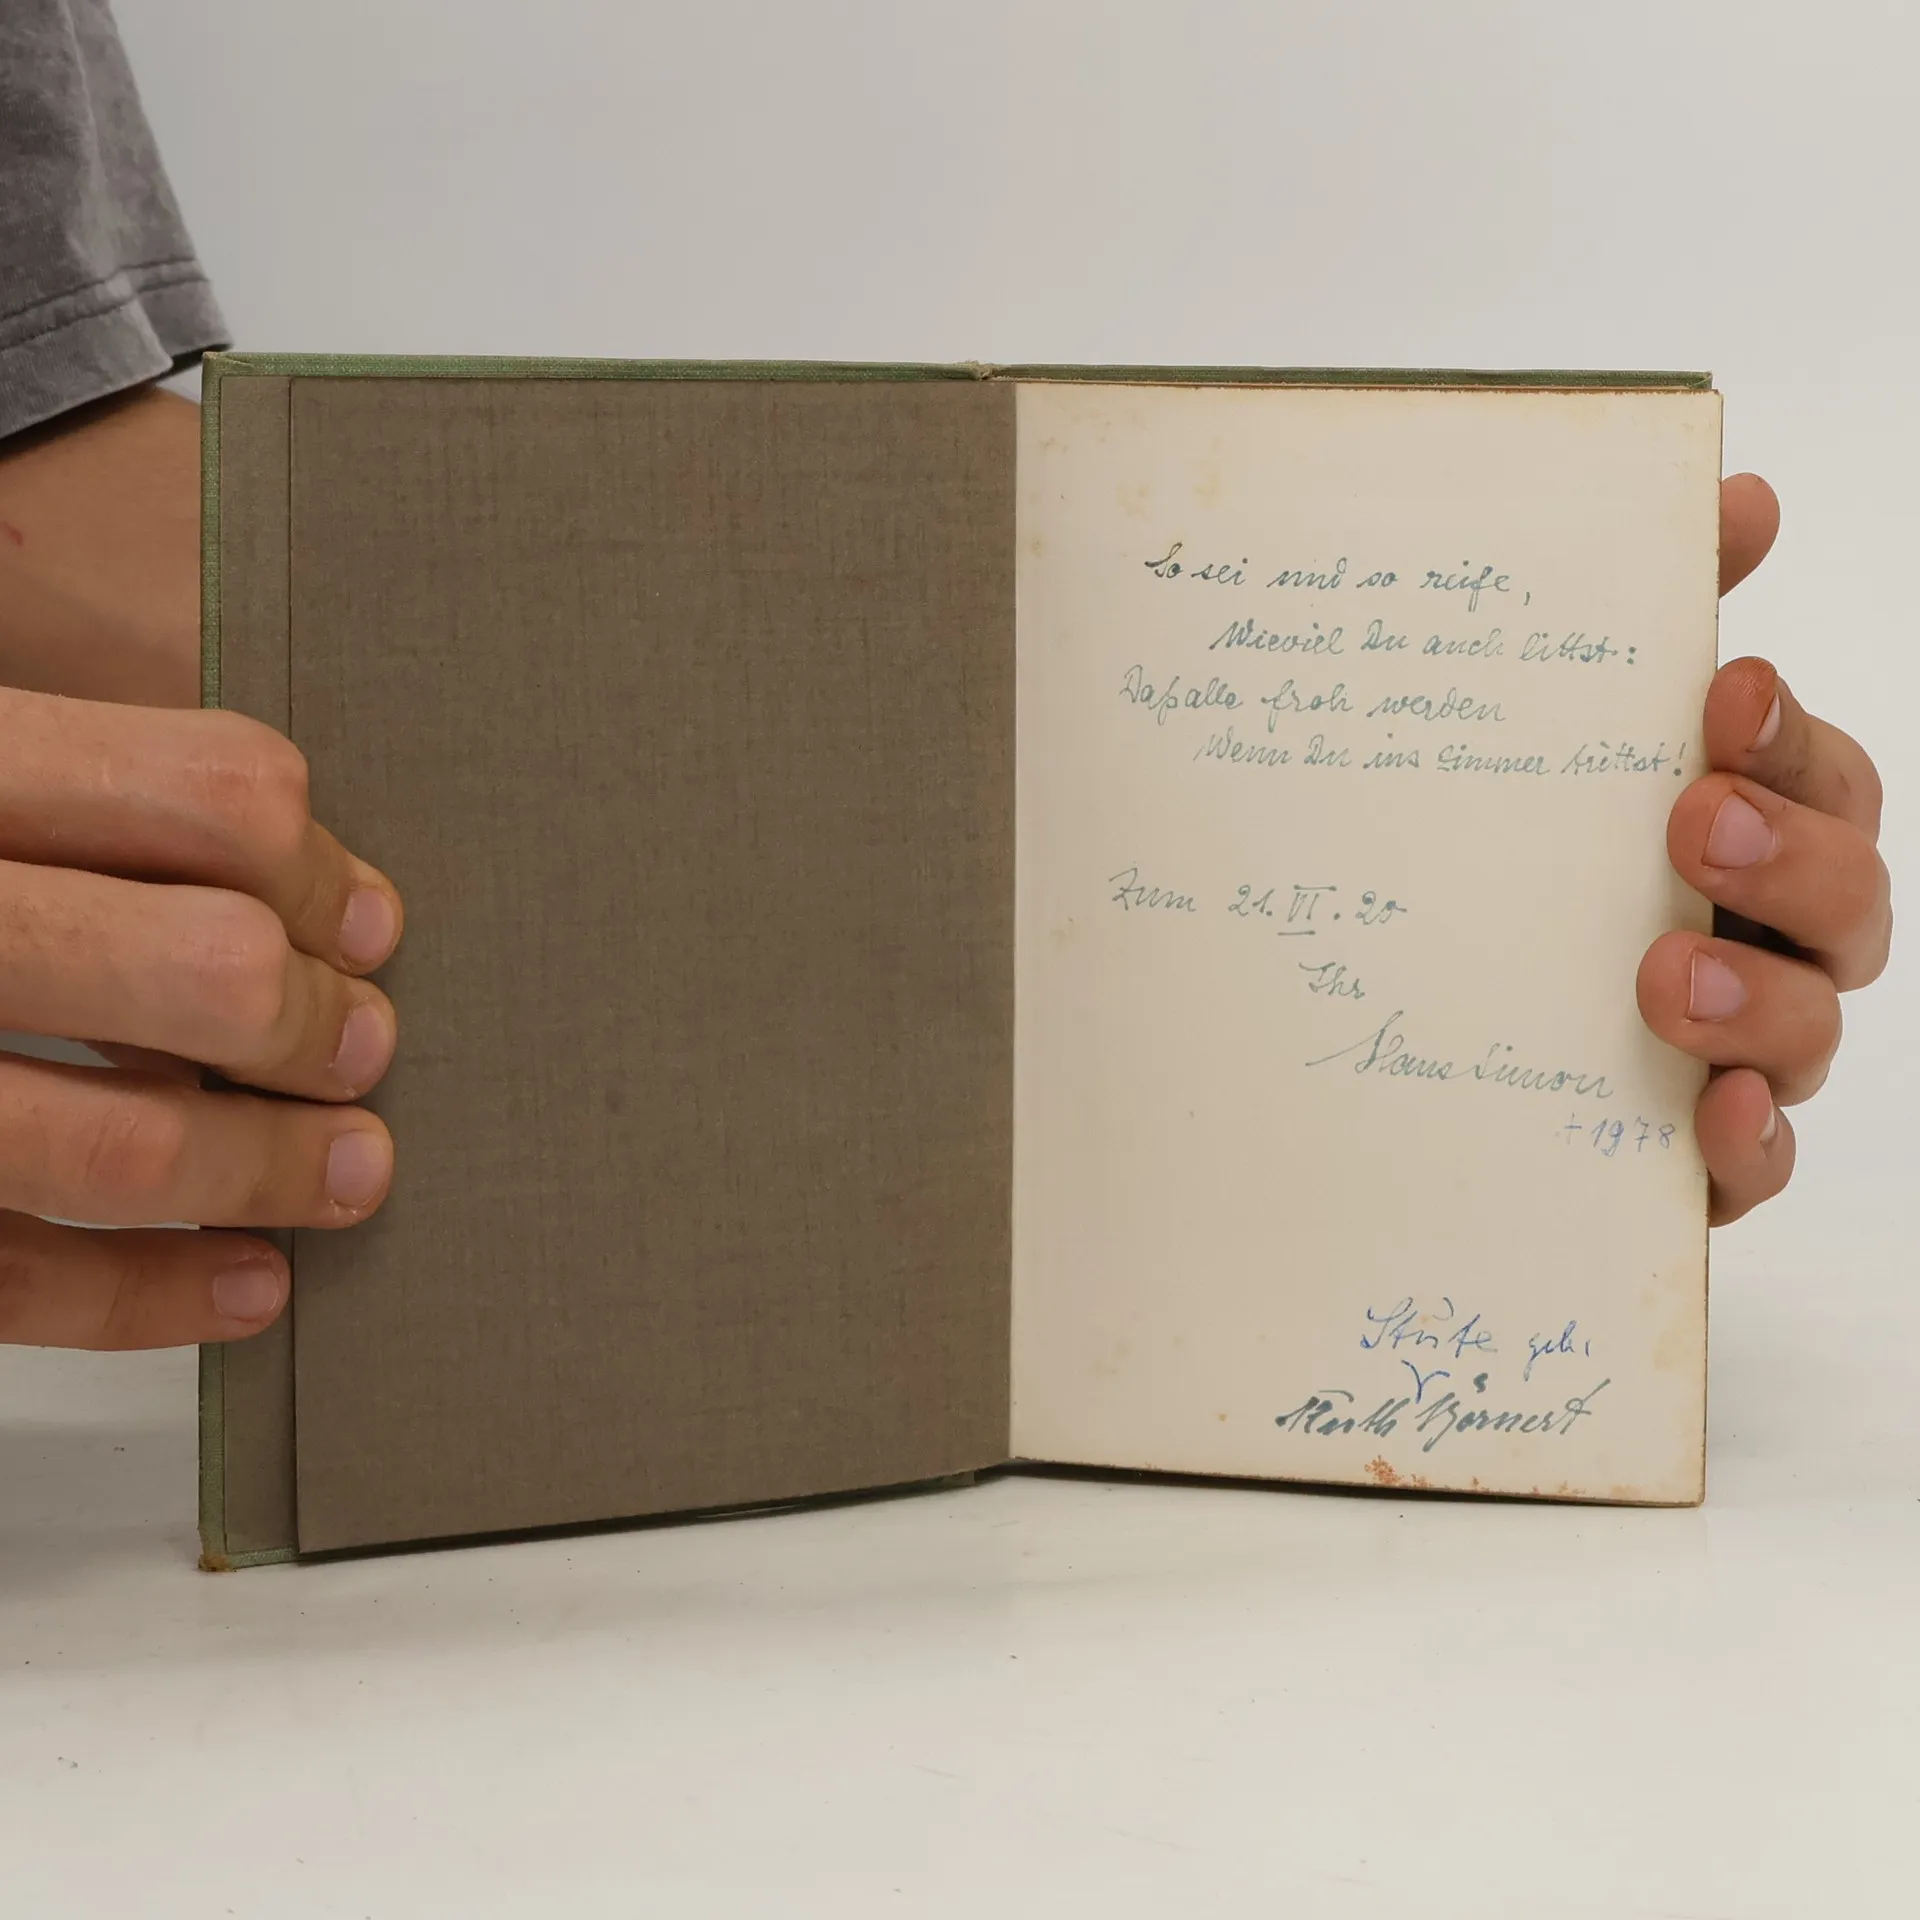 So sei und so reife,
Wieviel Du auch littst:
Daß alle froh werden
Wenn Du ins Zimmer trittst!
Zum 21. VI. 20
Ihr
Hans Simon
+ 1978
Stute geb.
Ruth Börnert